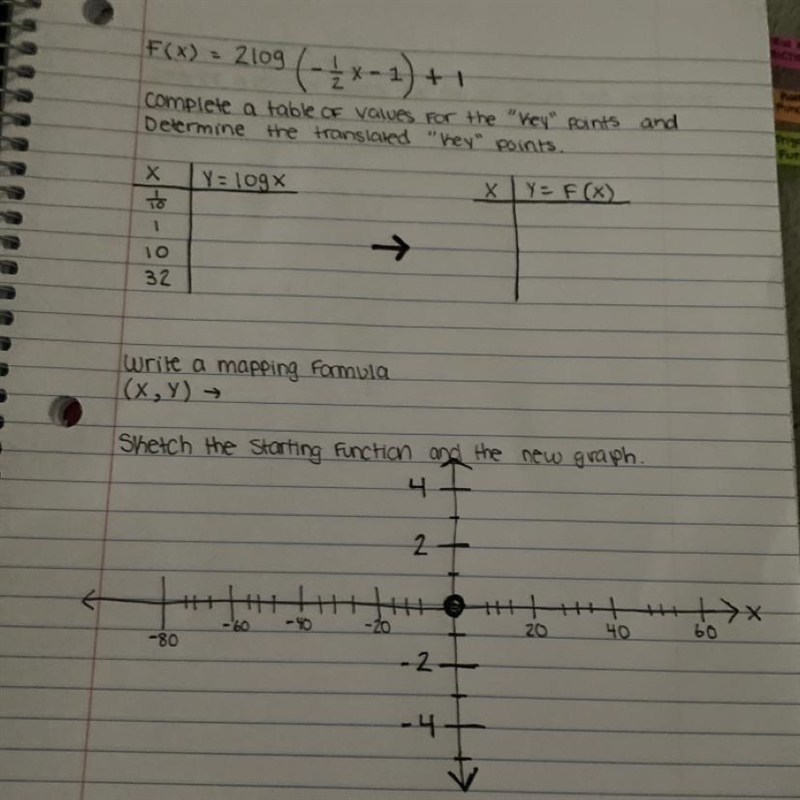 F(x) = 2log (-1/2 x - 1) + 1
Complete a table of values for the "key" points and
Determine the translated "key" points.
X | Y = logx
1/10
1
10
32
→
X | Y = F(x)
Write a mapping formula
(X, Y) →
Sketch the starting function and the new graph.
4
2
-80 -60 -40 -20 20 40 60 X
-2
-4